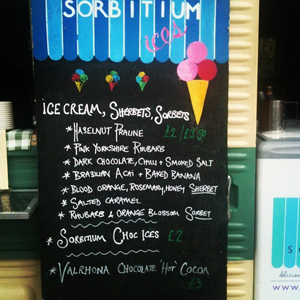 SORBITIUM
ices
ICE CREAM, SHERBETS, SORBETS
* HASELNUT PRALINE £2 / £3.50
* PINK YORKSHIRE RHUBARB
* DARK CHOCOLATE, CHILLI + SMOKED SALT
* BRASILIAN ACAI + BAKED BANANA
* BLOOD ORANGE, ROSEMARY, HONEY SHERBET
* SALTED CARAMEL
* RHUBARB & ORANGE BLOSSOM SORBET
* SORBITIUM CHOC ICES £2
* VALRHONA CHOCOLATE 'HOT' COCOA
£3
S
www